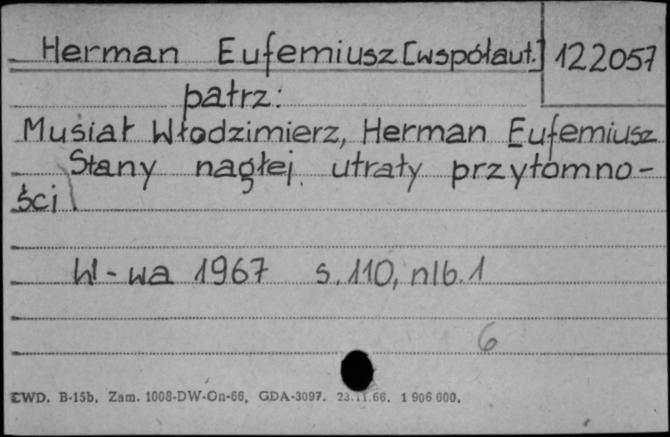 Herman Eufemiusz [współaut.] 122057
patrz:
Musiał Włodzimierz, Herman Eufemiusz
Stany nagłej utraty przytomno-
ści
W-wa 1967 s. 110, nlb. 1
6
CWD. B-15b. Zam. 1008-DW-On-66. GDA-3097. 23.11.66. 1 906 000.